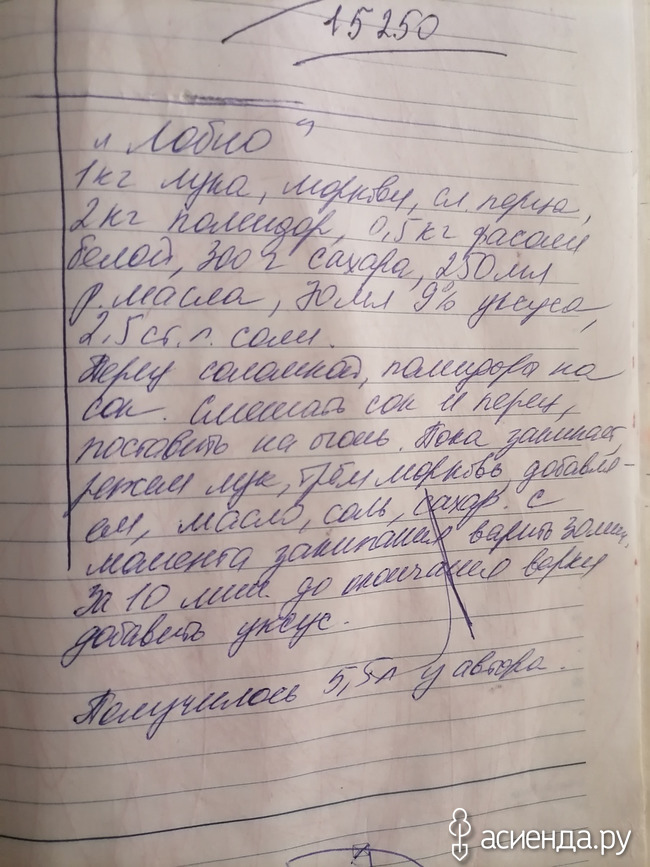 15250
"Лобио"
1кг лука, моркови, сл. перца,
2кг помидор, 0,5кг фасоли
белой, 300г сахара, 250мл
р. масла, 70мл 9% уксуса,
2,5 ст. л. соли.
Перец соломкой, помидоры на
сок. Смешать сок и перец,
поставить на огонь. Пока закипает,
режем лук, трём морковь, добавля-
ем, масло, соль, сахар. С
момента закипания варить 30 мин.
За 10 мин. до окончания варки
добавить уксус.
Получилось 5,5л у автора.
асиенда.ру